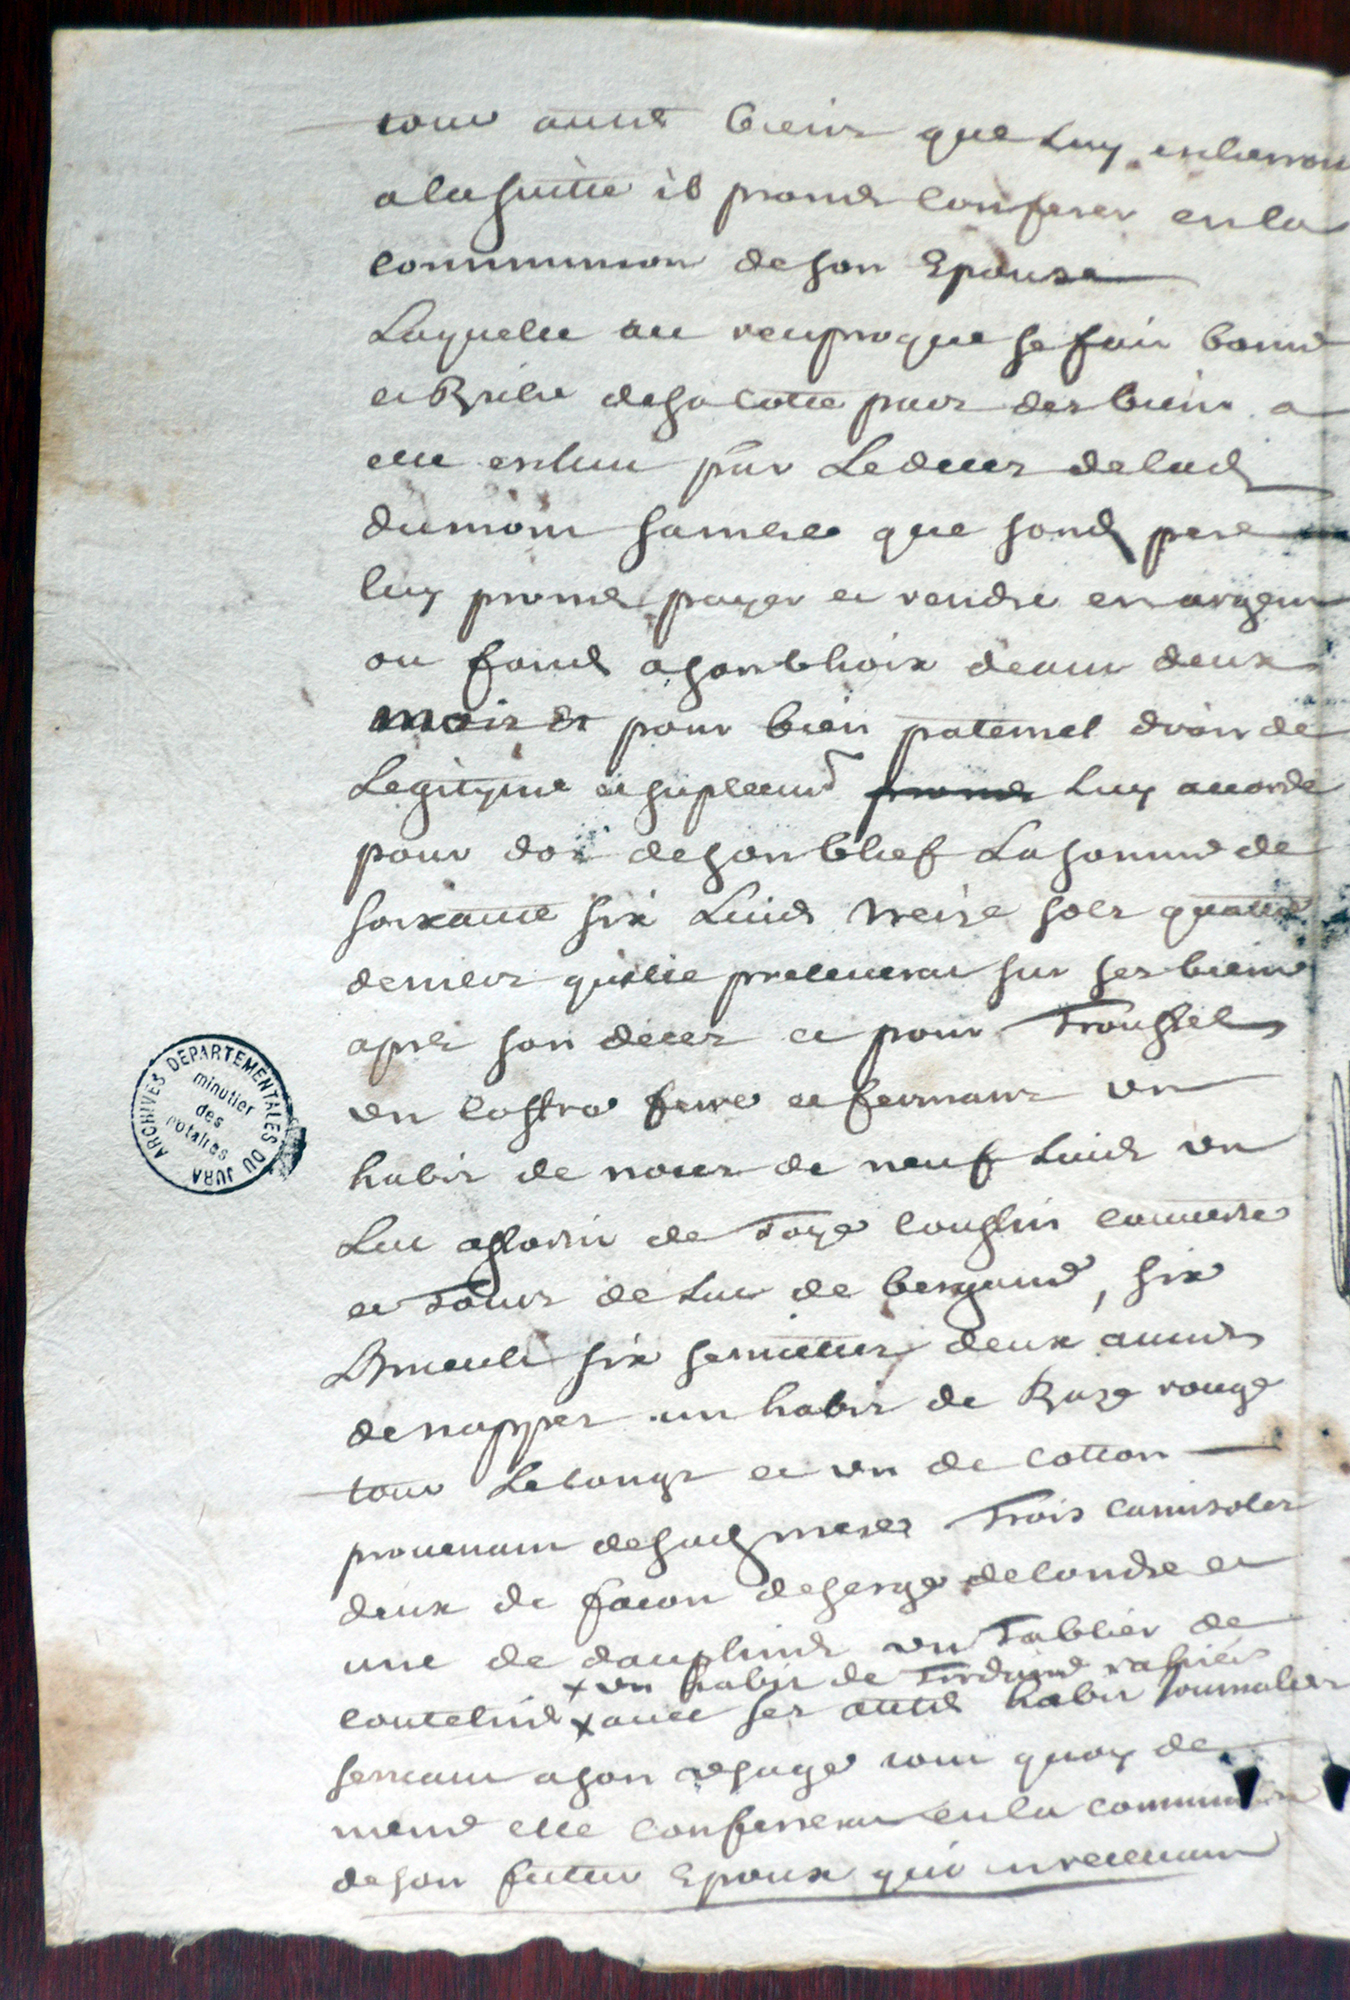 tous autres biens que luy escherront
a la suitte il promet conferer en la
communion de son Epouse
Laquelle au reciproque se fait bonne
et Riche de sa cotte part des biens a
elle eschu par Le deces de lad
dumont sa mere que sond pere
luy promet payer et rendre en argent
ou fond a son choix deans deux
mois Et pour bien paternel droit de
Legityme et suplement luy accorde
pour dot de son chef La somme de
soixante six Livres treize sols quattre
deniers qu'elle prelevera sur ses biens
apres son deces et pour Troussel
un coffre ferré et fermant un
habit de noces de neuf Livres un
Lict assorti de Taye coussin couverte
et Tour de Lict de bergame, six
six serviettes deux aunes
de nappes un habit de Raze rouge
tout Le corps et un de cotton
provenant de sad mere Trois camisoles
deux de facon de serge de londre et
une de dauphine un Tablier de
x un habit de
couteline x avec ses autres habits Journaliers
servant a son usage tout quoy de
meme elle conferera en la communion
de son futur Epoux qui
ARCHIVES DEPARTEMENTALES DU JURA
minutier
des
notaires